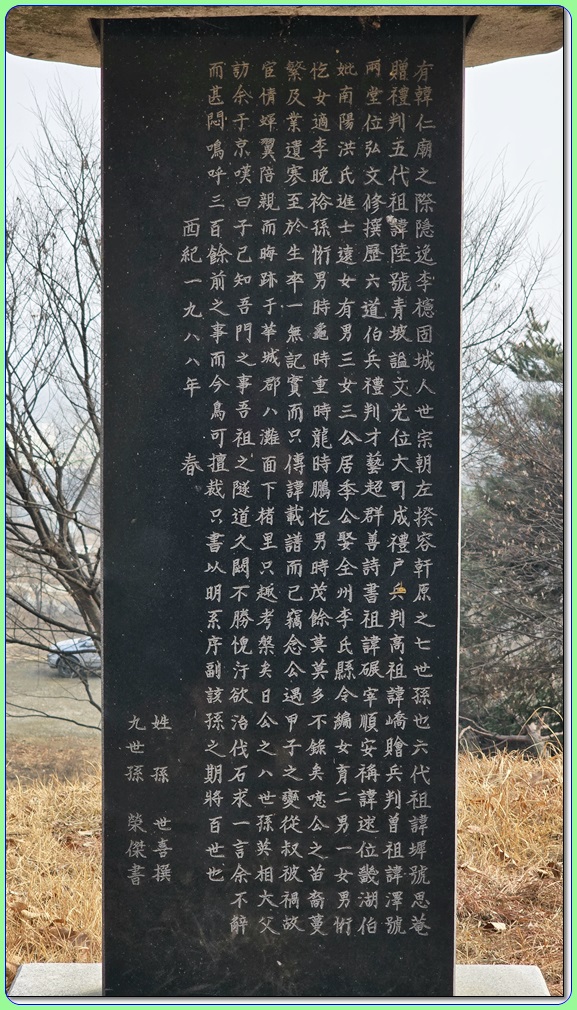 有韓仁廟之際隠逸李穂固城人世宗朝左揆容軒原之七世孫也六代祖諱墀號思菴
贈禮判五代祖諱陸號青坡諡文光位大司成禮户兵判高祖諱嶠贈兵判曾祖諱澤號
兩堂位弘文修撰歷六道伯兵禮判才藝超群善詩書祖諱碾宰順安稱諱逑位畿湖伯
妣南陽洪氏進士遠女有男三女三公居季公娶全州李氏縣令編女育二男一女男㤚
忔女適李晩裕孫㤚男時龜時重時龍時鵬忔男時茂餘莫莫多不錄矣噫公之苗裔蔓
繁及業遺寒至於生卒一無記實而只傳諱載譜而已竊念公遇甲子之變從叔被禍故
宦情蟬翼陪親而晦跡于華城郡八灘面下楮里只趣考槃矣日公之八世孫英相大父
訪余于京嘆曰子已知吾門之事吾祖之隧道久闕不勝愧汗欲治伐石求一言余不辭
而甚悶嗚呼三百餘前之事而今烏可擅裁只書以明系序副該孫之期將百世也
西紀一九八八年 春
姓孫 世喜撰
九世孫 榮傑書